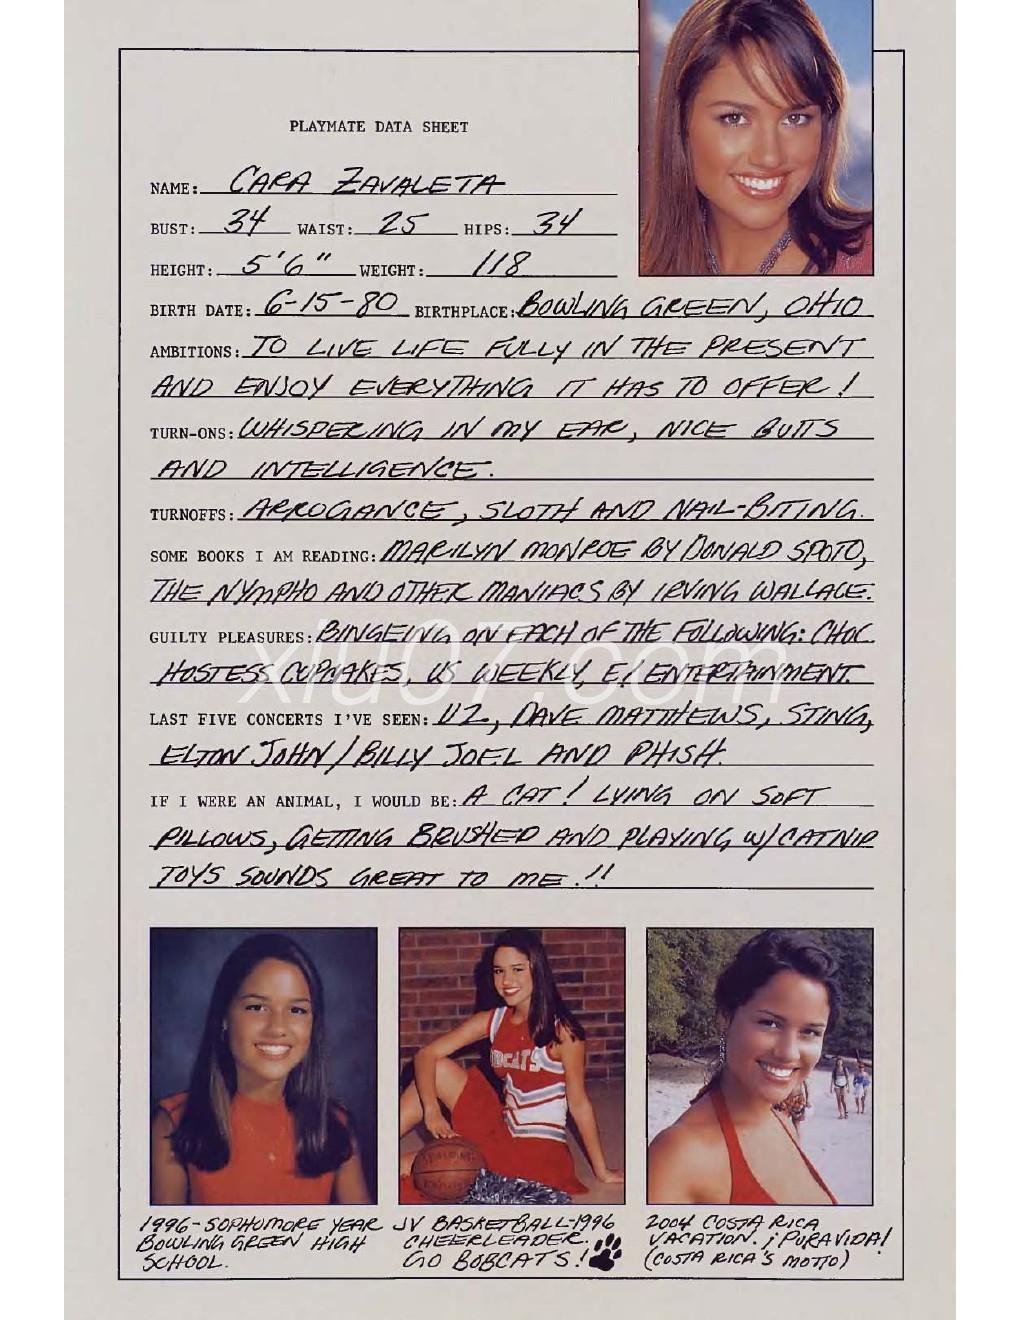 PLAYMATE DATA SHEET
NAME: CARA ZAVALETA
BUST: 34 WAIST: 25 HIPS: 34
HEIGHT: 5'6" WEIGHT: 118
BIRTH DATE: 6-15-80 BIRTHPLACE: BOWLING GREEN, OHIO
AMBITIONS: TO LIVE LIFE FULLY IN THE PRESENT
AND ENJOY EVERYTHING IT HAS TO OFFER!
TURN-ONS: WHISPERING IN MY EAR, NICE BUTTS
AND INTELLIGENCE.
TURNOFFS: ARROGANCE, SLOTH AND NAIL-BITING.
SOME BOOKS I AM READING: MARILYN MONROE BY DONALD SPOTO,
THE NYMPHO AND OTHER MANIACS BY IRVING WALLACE.
GUILTY PLEASURES: BINGEING ON EACH OF THE FOLLOWING: CHOC.
HOSTESS CUPCAKES, US WEEKLY, E! ENTERTAINMENT.
xiu07.com
LAST FIVE CONCERTS I'VE SEEN: U2, DAVE MATTHEWS, STING,
ELTON JOHN/BILLY JOEL AND PHISH.
IF I WERE AN ANIMAL, I WOULD BE: A CAT! LYING ON SOFT
PILLOWS, GETTING BRUSHED AND PLAYING W/CATNIP
TOYS SOUNDS GREAT TO ME!!
BOBCATS
SPALDING
1996-SOPHOMORE YEAR
BOWLING GREEN HIGH
SCHOOL.
JV BASKETBALL-1996
CHEERLEADER.
GO BOBCATS!
2004 COSTA RICA
VACATION. ¡PURA VIDA!
(COSTA RICA'S MOTTO)